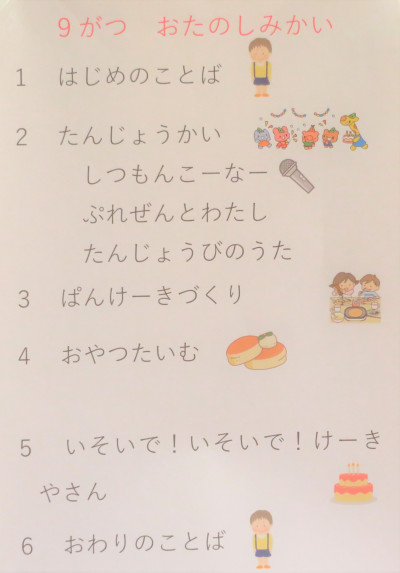 9がつ　おたのしみかい
1　はじめのことば
2　たんじょうかい
しつもんこーなー
ぷれぜんとわたし
たんじょうびのうた
3　ぱんけーきづくり
4　おやつたいむ
5　いそいで！いそいで！けーき
やさん
6　おわりのことば